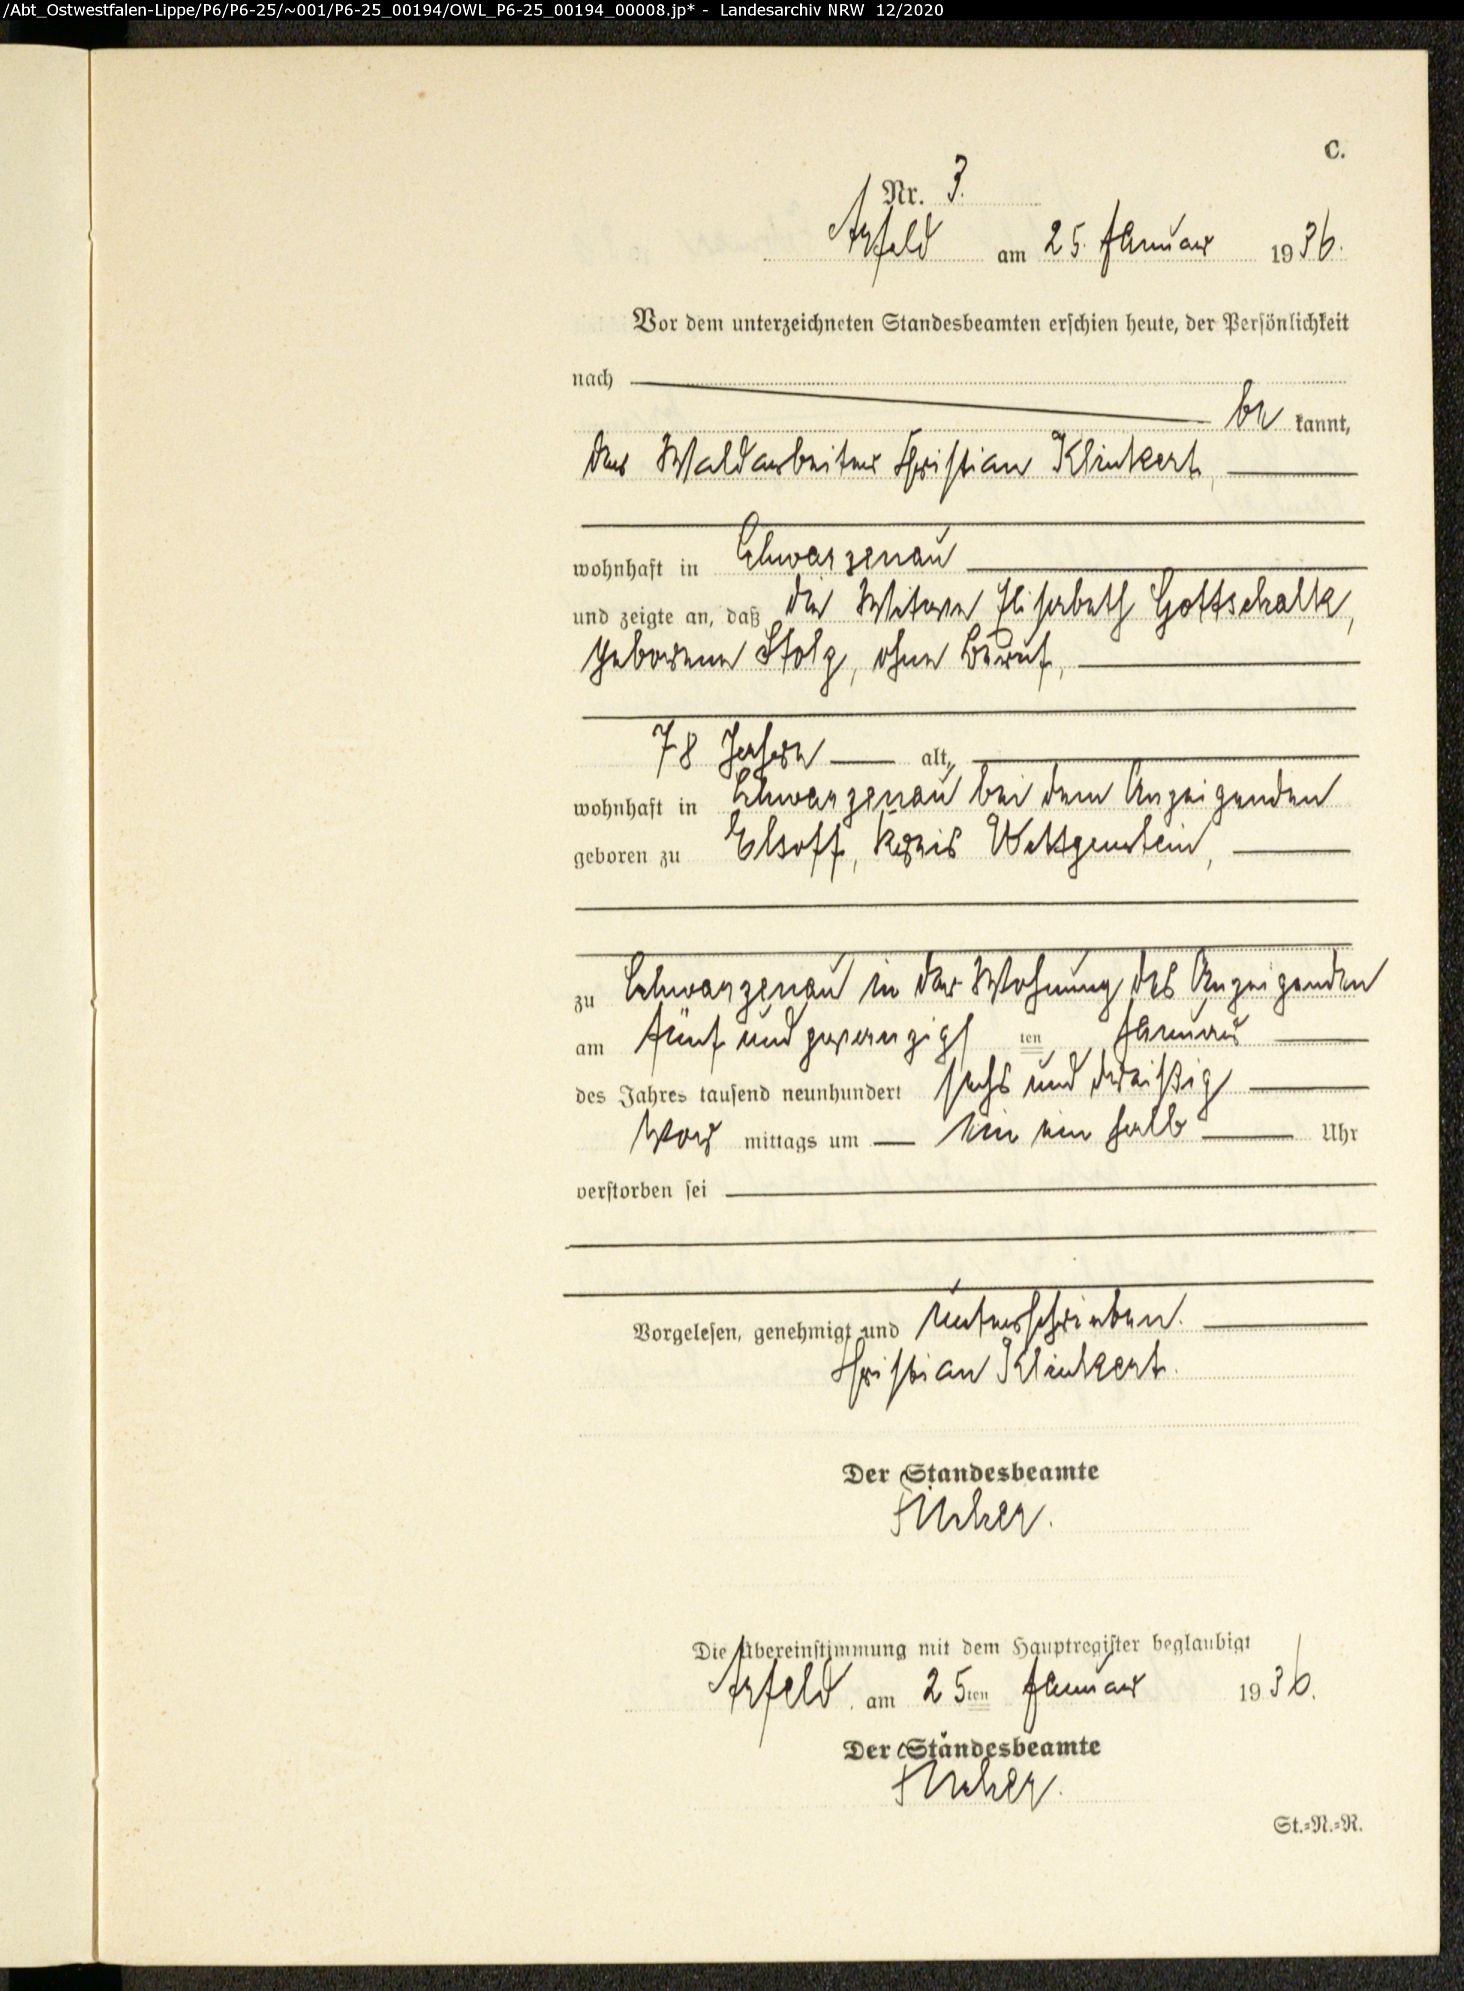 /Abt_Ostwestfalen-Lippe/P6/P6-25/~001/P6-25_00194/OWL_P6-25_00194_00008.jp* - Landesarchiv NRW 12/2020
C.
Nr. 3.
Arfeld am 25. Januar 1936.
Vor dem unterzeichneten Standesbeamten erschien heute, der Persönlichkeit
nach
be kannt,
der Waldarbeiter Christian Klinkert,
wohnhaft in Schwarzenau
und zeigte an, daß die Witwe Elisabeth Gottschalk,
geborene Stolz, ohne Beruf,
78 Jahre alt,
wohnhaft in Schwarzenau bei dem Anzeigenden
geboren zu Elsoff, Kreis Wittgenstein,
zu Schwarzenau in der Wohnung des Anzeigenden
am fünf und zwanzigs ten Januar
des Jahres tausend neunhundert sechs und dreißig
Vor mittags um ein halb Uhr
verstorben sei
Vorgelesen, genehmigt und unterschrieben.
Christian Klinkert.
Der Standesbeamte
Die Übereinstimmung mit dem Hauptregister beglaubigt
Arfeld am 25ten Januar 1936.
Der Standesbeamte
St.=N.=R.